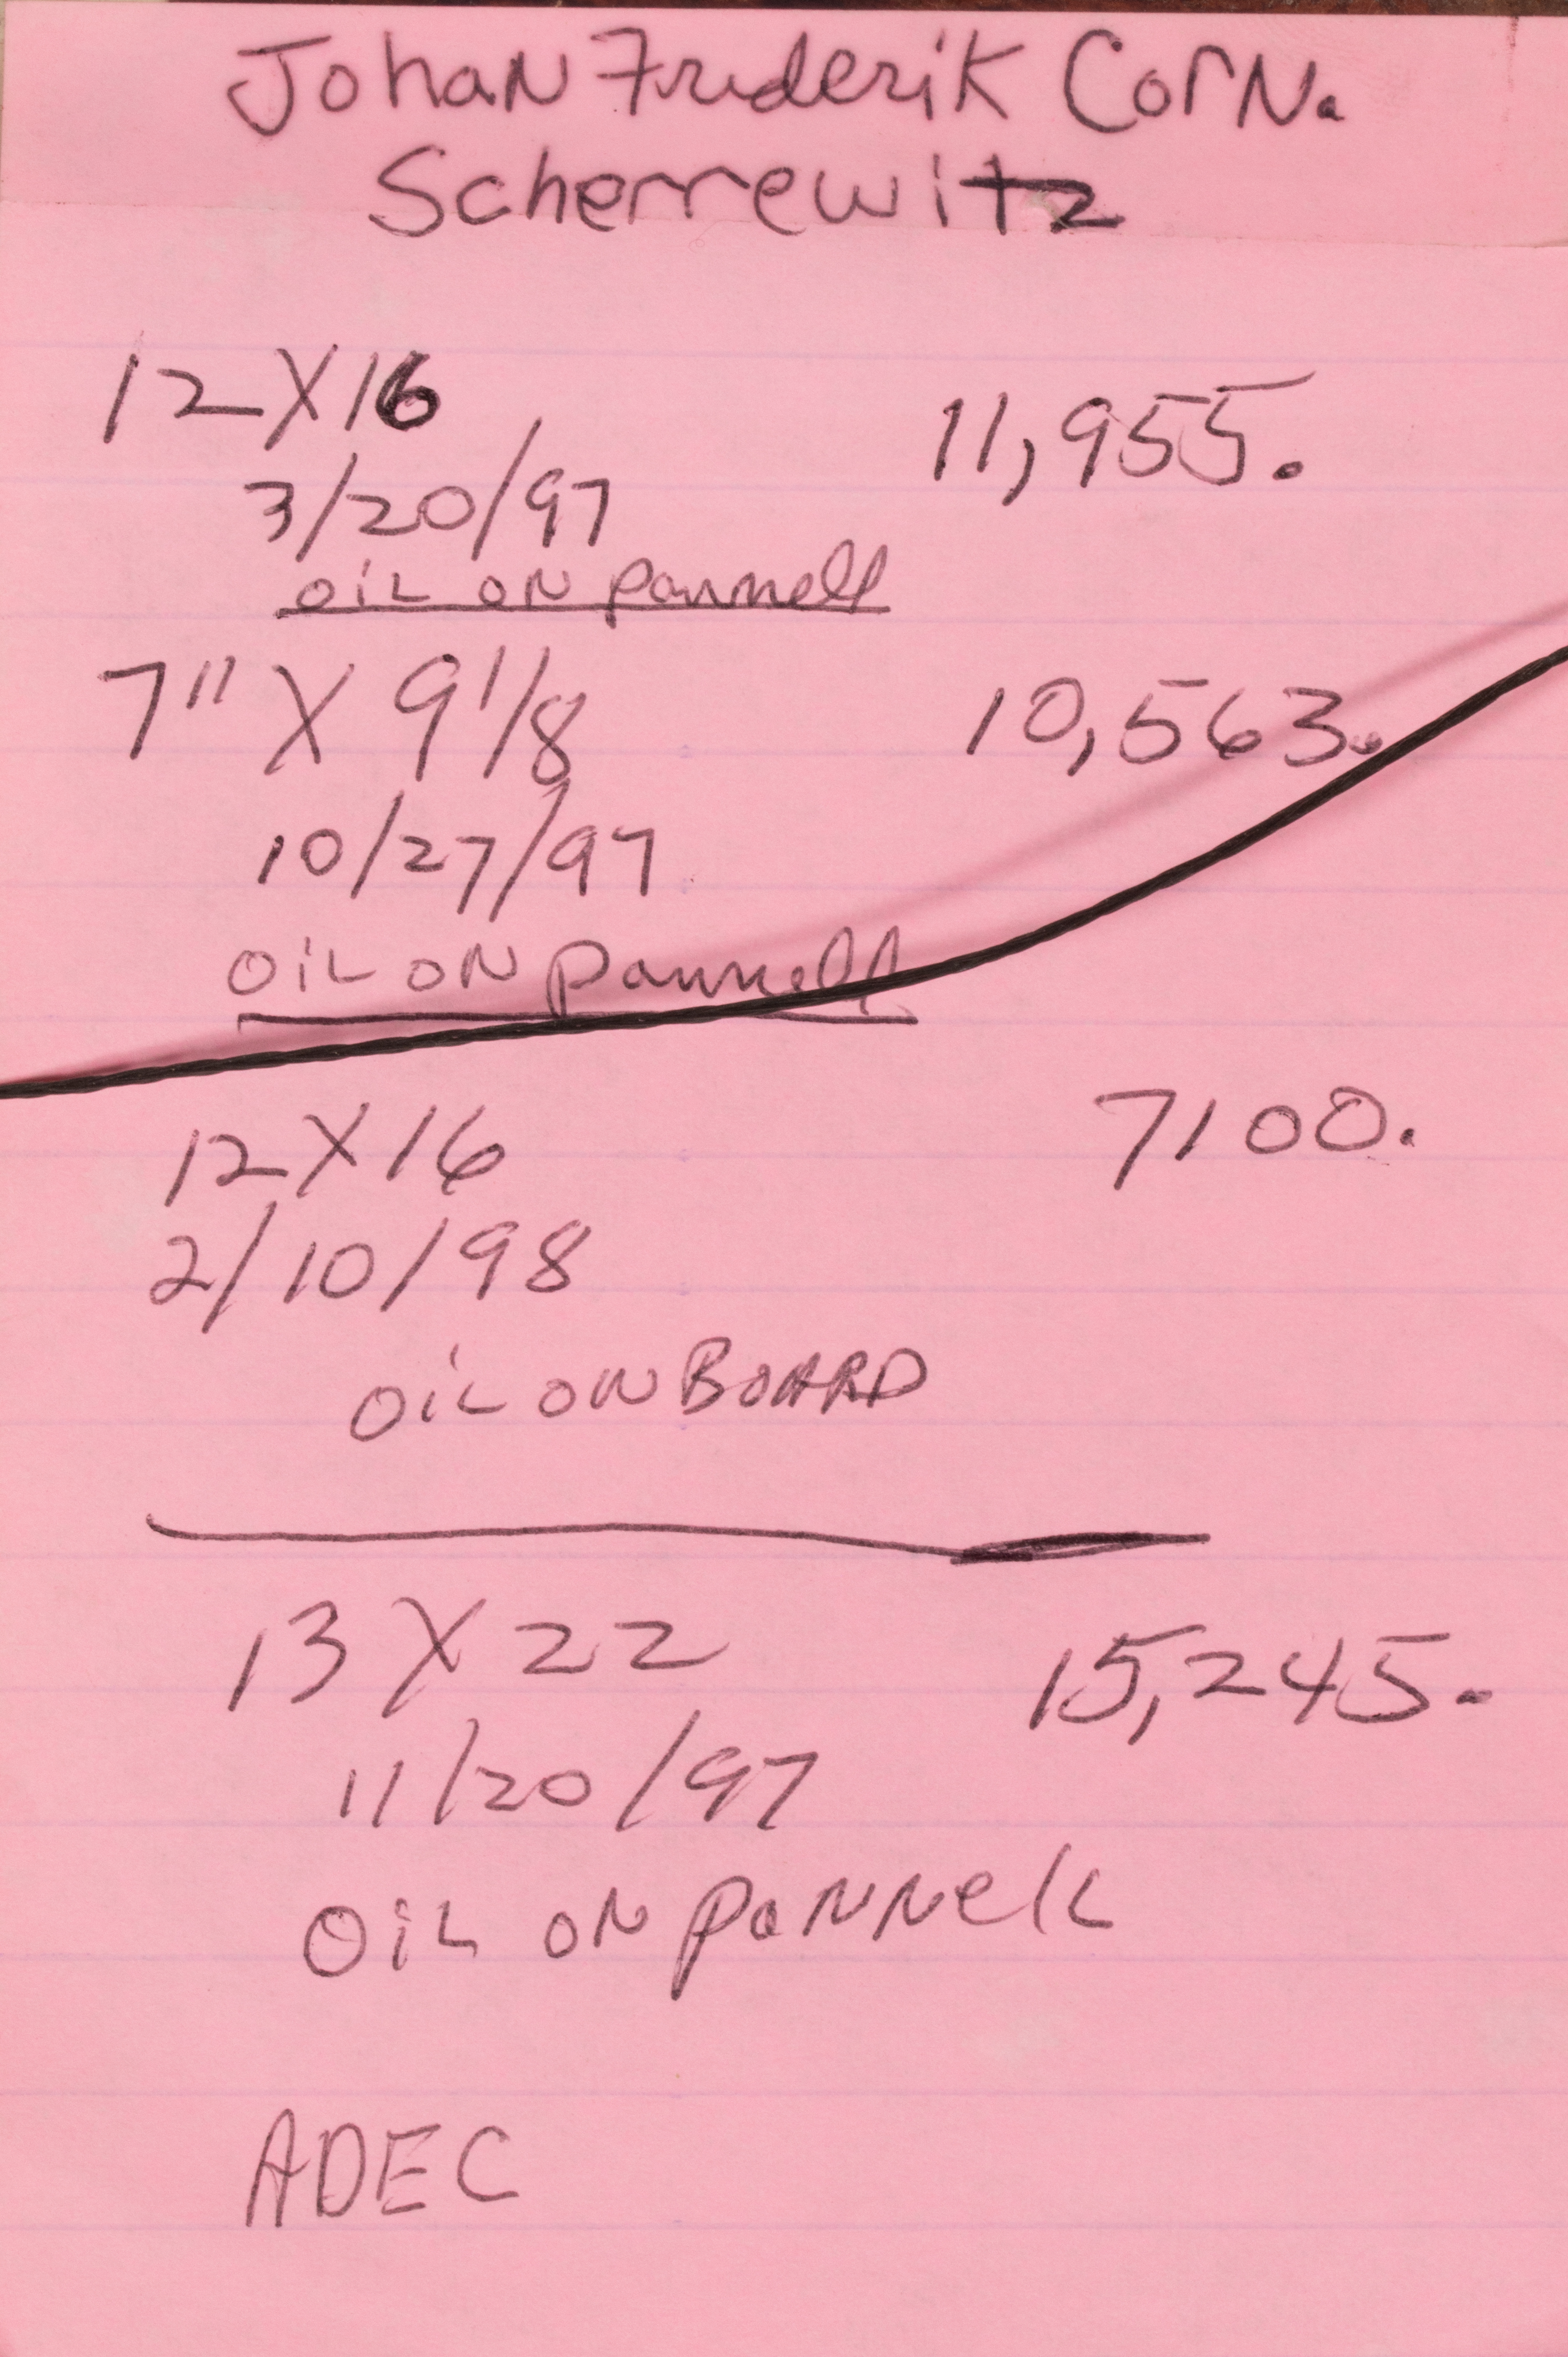 Johan Frederik Corn.
Scherrewitz
12 X 16
11,955.
3/20/97
OIL ON pannell
7" X 9 1/8
10,563.
10/27/97
OIL ON pannell
12 X 16
7100.
2/10/98
OIL ON BOARD
13 X 22
15,245.
11/20/97
OIL ON pANNell
ADEC